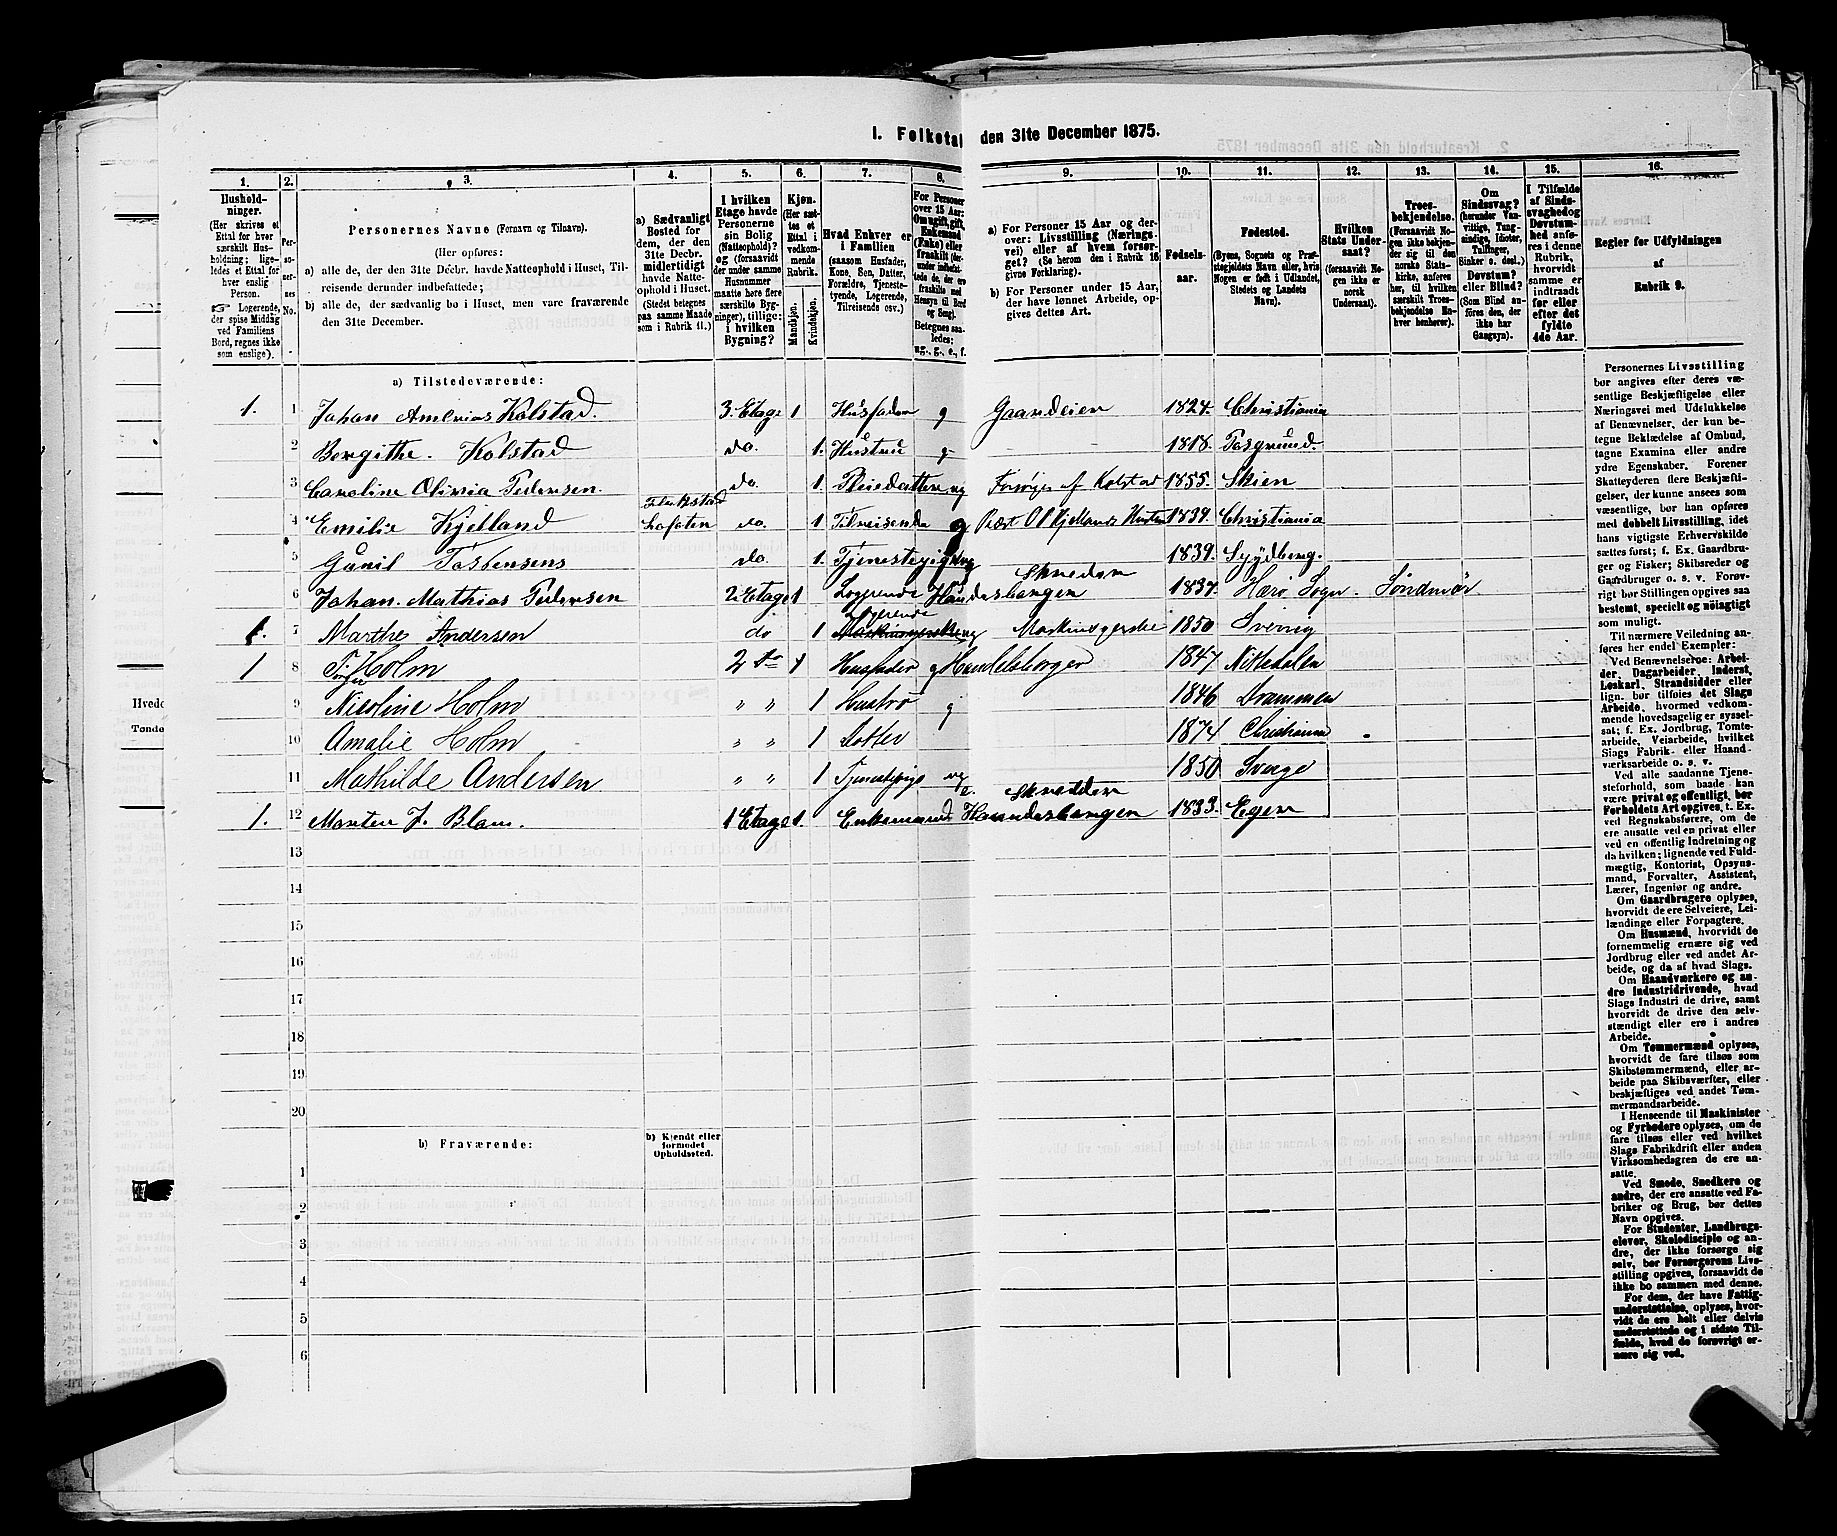 1. Folketal den 31te December 1875.
1. 2. 3. 4. 5. 6. 7. 8. 9. 10. 11. 12. 13. 14. 15. 16.
Husholdninger. (Her skrives et Ettal for hver særskilt Husholdning; ligeledes et Ettal for hver enslig Person. ☞ Logerende, der spise Middag ved Familiens Bord, regnes ikke som enslige).
Personernes No.
Personernes Navne (Fornavn og Tilnavn).
(Her opføres:
a) alle de, der den 31te Decbr. havde Natteophold i Huset, Tilreisende derunder indbefattede;
b) alle de, der sædvanlig bo i Huset, men vare fraværende den 31te December.
a) Sædvanligt Bosted for dem, der den 31te Decbr. midlertidigt havde Natteophold i Huset. (Stedet betegnes paa samme Maade som i Rubrik 11.)
I hvilken Etage havde Personerne sin Bolig (Natteophold)? og (forsaavidt der under samme Husnummer maatte høre flere særskilte Bygninger), tillige: i hvilken Bygning?
Kjøn. (Her sættes et Ettal i vedkommende Rubrik.
Mandkjøn. Kvindekjøn.
Hvad Enhver er i Familien (saasom Husfader, Kone, Søn, Datter, Forældre, Tjenestetyende, Logerende, Tilreisende osv.)
For Personer over 15 Aar: Om ugift, gift, Enkemand (Enke) eller fraskilt
Betegnes saaledes: ug., g., e., f.
a) For Personer 15 Aar og derover: Livsstilling (Næringsvei) eller af hvem forsørget? (Se herom den i Rubrik 16 givne Forklaring).
b) For Personer under 15 Aar, der have lønnet Arbeide, opgives dettes Art.
Fødselsaar.
Fødested. (Byens, Sognets og Præstegjeldets Navn eller, hvis Nogen er født i Udlandet, Stedets og Landets Navn).
Hvilken Stats Undersaat? (forsaavidt Nogen ikke er norsk Undersaat).
Troesbekjendelse. (Forsaavidt Nogen ikke bekjender sig til den norske Statskirke, anføres her, til hvilken særskilt Troesbekjendelse Enhver henhører).
Om Sindssvag? (herunder Vanvittige, Tungsindige, Idioter, Tullinger, Sinker o. desl.). Døvstum? eller Blind? (Som Blind anføres den, der ikke har Gangsyn).
I Tilfælde af Sindssvaghed og Døvstumhed anføres i denne Rubrik, hvorvidt samme er indtraadt før eller efter det fyldte 4de Aar.
Regler for Udfyldningen
af
Rubrik 9.
a) Tilstedeværende:
1. 1 Johan Kolstad. 3. Etage 1 Husfader g Gaardeier 1824. Christiania
2 Borgithe. Kolstad do. 1. Hustru g 1818.
3 Caroline Olivia Pedersen. do. 1. Pleiedatter ug Forsørges af Kolstad 1855. Skien
4 Emilie Kjelland Lofoten do. 1 Tilreisende g 1839. Christiania
5 do. 1. ug 1839.
Skredder
6 Johan. Mathias Pedersen 2 Etage 1 Logerende 1837. Herø Sogn. Søndmør
Logerende
7 Marthe Andersen do 1 ug Maskinsyerske 1850
1 8 Holm 2 1 Husfader g Handelsborger 1847 Nittedalen
9 Nicoline Holm " " 1 Hustro g 1846 Drammen
10 Amalie Holm " " 1 Datter 1874 Christiania
11 Mathilde Andersen " " 1 ug 1850 Sverge
e. Skredder
1. 12 Morten J. 1 Etage 1. Enkemand 1833.
13
14
15
16
17
18
19
20
b) Fraværende:
b) Kjendt eller formodet Opholdssted.
1
2
3
4
5
6
Personernes Livsstilling
bør angives efter deres væ-
sentlige Beskjæftigelse eller
Næringsvei med Udelukkelse
af Benævnelser, der kun be-
tegne Beklædelse af Ombud,
tagne Examina eller andre
ydre Egenskaber. Forener
Skatteyderen flere Beskjæfti-
gelser, der kunne ansees som
væsentlige, bør han opføres
med dobbelt Livsstilling, idet
hans vigtigste Erhvervskilde
sættes først; f. Ex. Gaardbru-
ger og Fisker; Skibsreder og
Gaardbruger o. s. v. Forøv-
rigt bør Stillingen opgives saa
bestemt, specielt og nøiagtigt
som muligt.
Til nærmere Veiledning an-
føres her endel Exempler:
Ved Benævnelserne: Arbei-
der, Dagarbeider, Inderst,
Løskarl, Strandsidder eller
lign. bør tilføies det Slags
Arbeide, hvormed vedkom-
mende hovedsagelig er syssel-
sat; f. Ex. Jordbrug, Tomte-
arbeide, Veiarbeide, hvilket
Slags Fabrik- eller Haand-
værksarbeide o. s. v.
Ved alle saadanne Tjene-
steforhold, som baade kan
være privat og offentligt, bør
Forholdets Art opgives, t. Ex.
ved Regnskabsførere, om de
ere ansatte ved en privat eller
ved en offentlig Indretning og
da hvilken; lignende ved Fuld-
mægtig, Kontorist, Opsyns-
mand, Forvalter, Assistent,
Lærer, Ingeniør og andre.
Om Gaardbrugere oplyses,
hvorvidt de ere Selveiere, Lei-
lændinge eller Forpagtere.
Om Husmænd, hvorvidt de
fornemmelig ernære sig ved
Jordbrug eller ved andet Ar-
beide, og da af hvad Slags.
Om Haandværkere og an-
dre Industridrivende, hvad
Slags Industri de drive, samt
hvorvidt de drive den selv-
stændigt eller ere i andres
Arbeide.
Om Tømmermænd oplyses,
hvorvidt de fare tilsøs som
Skibstømmermænd, eller ar-
beide paa Skibsværfter, eller
beskjæftiges ved andet Tøm-
mermandsarbeide.
I Henseende til Maskinister
og Fyrbødere oplyses, om de
fare tilsøs eller ved hvilket
Slags Fabrikdrift eller anden
Virksomhedsgren de ere an-
satte.
Ved Smede, Snedkere og
andre, der ere ansatte ved Fa-
briker og Brug, bør dettes
Navn opgives.
For Studenter, Landbrugs-
elever, Skoledisciple og an-
dre, der ikke forsørge sig
selv, bør Forsørgerens Livs-
stilling opgives, forsaavidt de
ikke bo sammen med denne.
For dem, der have Fattig-
understøttelse, oplyses, hvor-
vidt de ere helt eller delvis
understøttede og i sidste Til-
fælde, hvad de forøvrigt er-
nære sig ved.